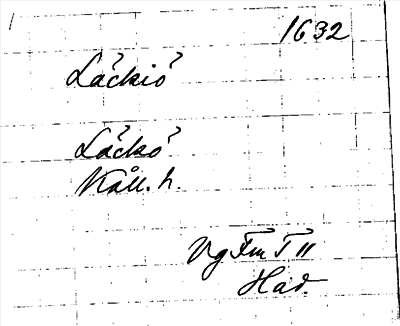 1632
Läckiö
Läckö
Kåll. h
Vg Fm T II
Had.